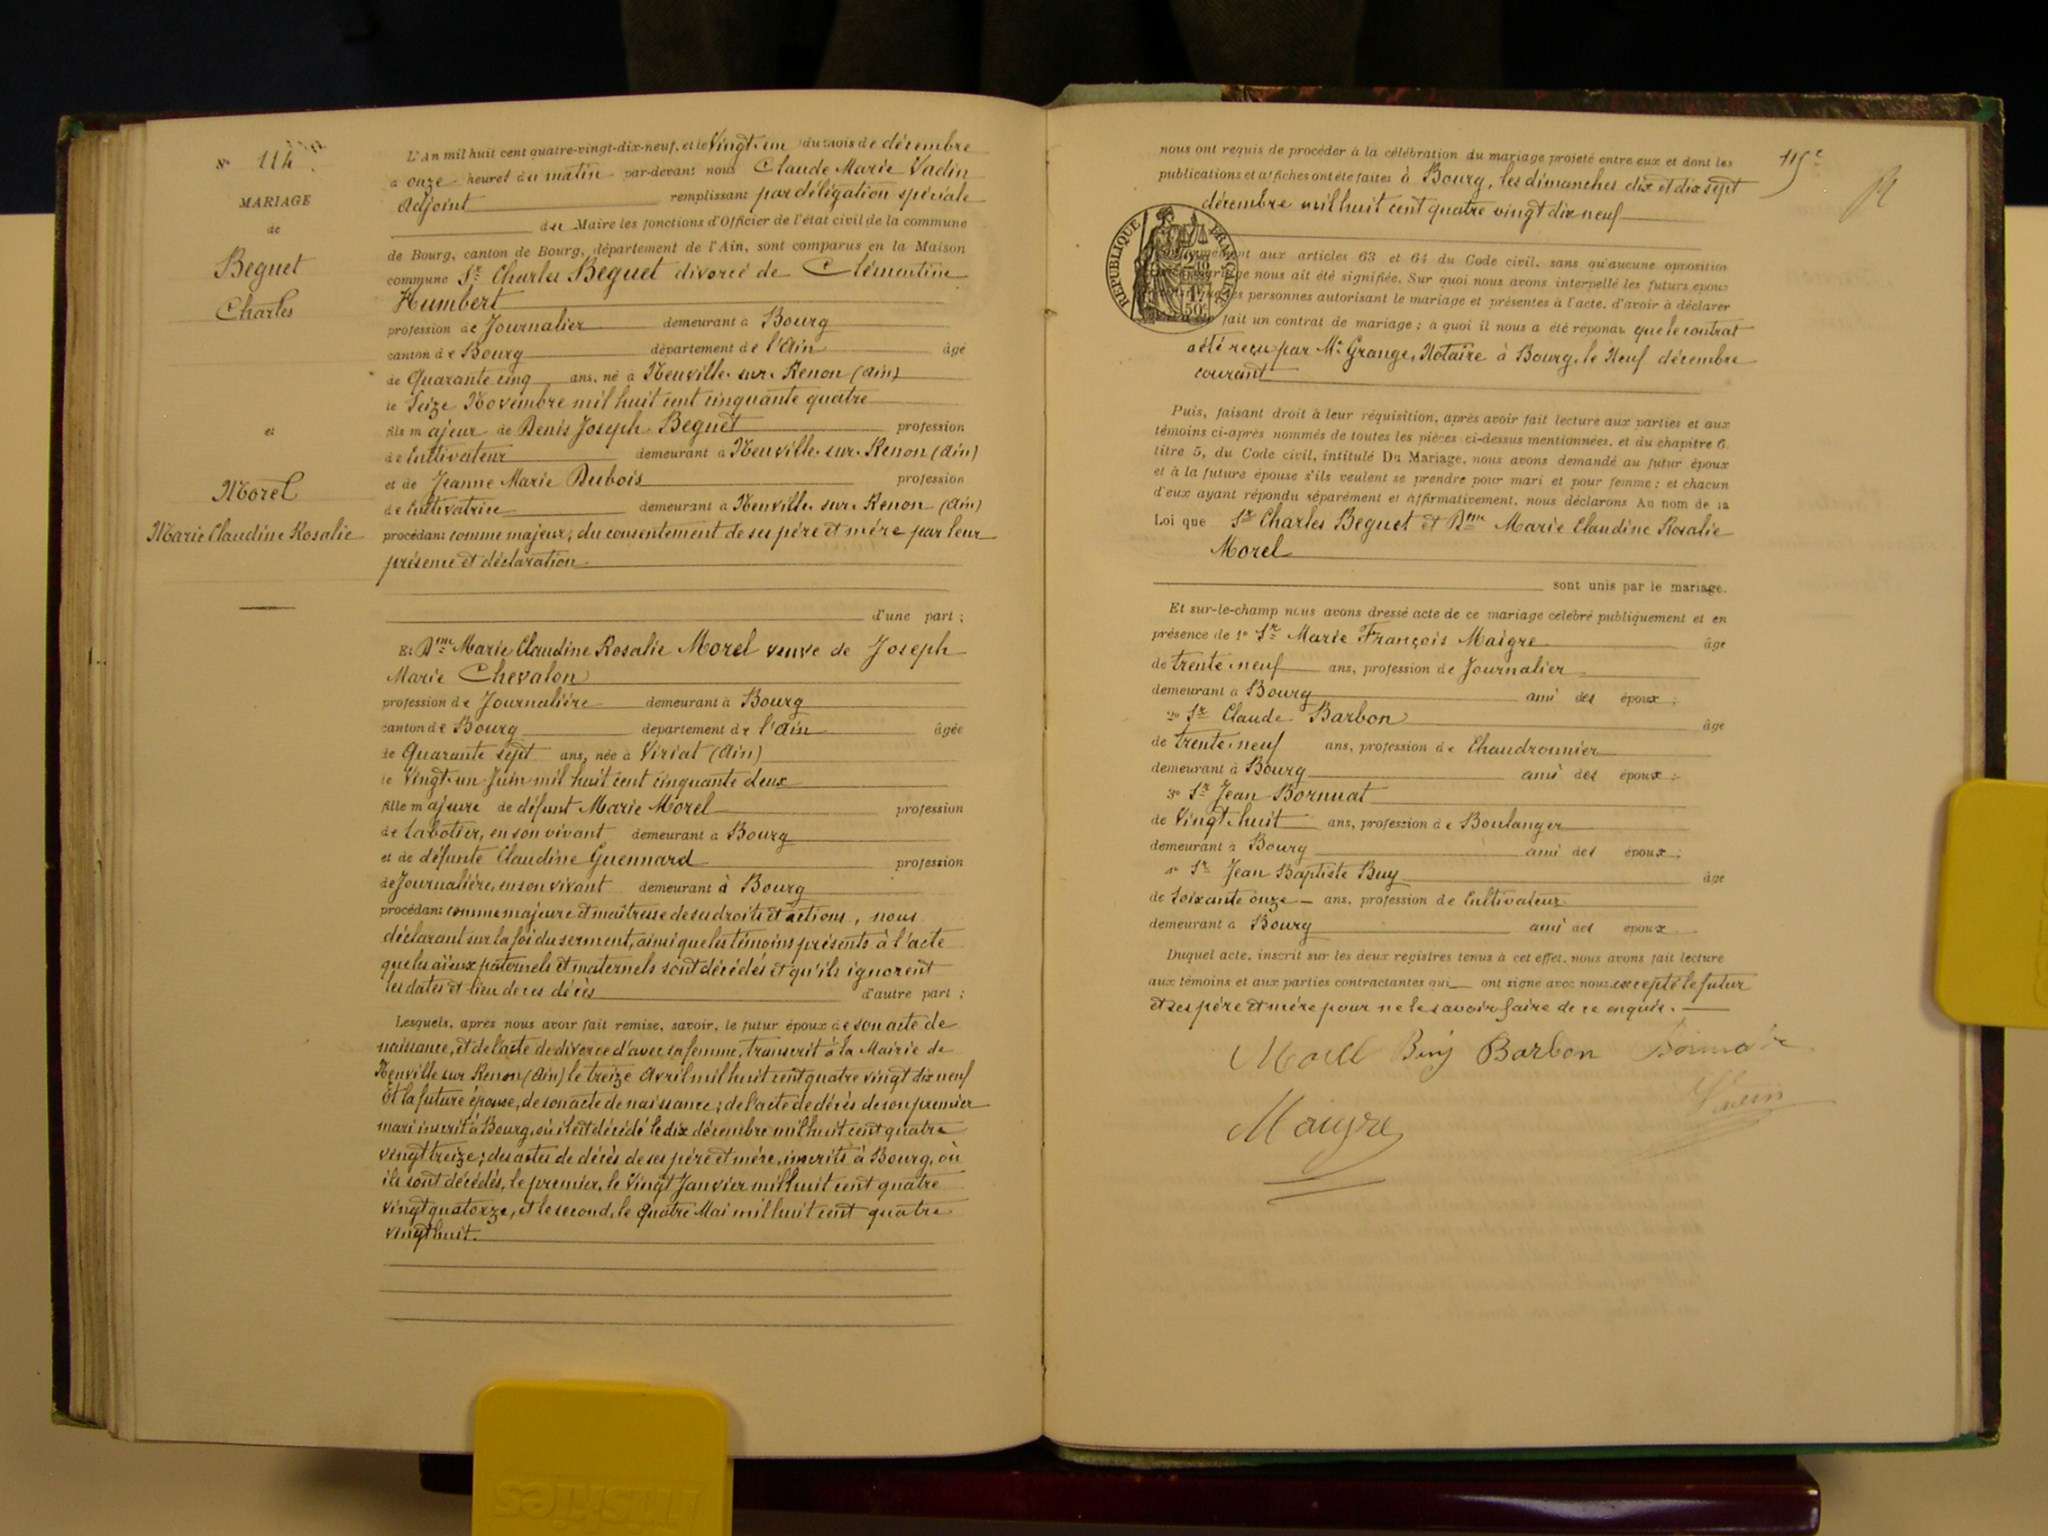 N° 114
MARIAGE
de
Beguet
Charles
et
Morel
Marie Claudine Rosalie
L'An mil huit cent quatre-vingt-dix-neuf, et le Vingt-un du mois de décembre
à onze heures du matin par-devant nous Claude Marie Vadin
Adjoint remplissant par délégation spéciale
du Maire les fonctions d'Officier de l'état civil de la commune
de Bourg, canton de Bourg, département de l'Ain, sont comparus en la Maison
commune Sr Charles Beguet divorcé de Clémentine
Humbert
profession de Journalier demeurant à Bourg
canton de Bourg département de l'Ain âgé
de Quarante cinq ans, né à Neuville sur Renon (Ain)
le Seize Novembre mil huit cent cinquante quatre
fils majeur de Denis Joseph Beguet profession
de Cultivateur demeurant à Neuville sur Renon (Ain)
et de Jeanne Marie Dubois profession
de Cultivatrice demeurant à Neuville sur Renon (Ain)
procédant comme majeur, du consentement de ses père et mère par leur
présence et déclaration
d'une part ;
Et Dme Marie Claudine Rosalie Morel veuve de Joseph
Marie Chevalon
profession de Journalière demeurant à Bourg
canton de Bourg département de l'Ain âgée
de Quarante sept ans, née à Viriat (Ain)
le Vingt-un Juin mil huit cent cinquante deux
fille majeure de défunt Marie Morel profession
de Sabotier, en son vivant demeurant à Bourg
et de défunte Claudine Guennard profession
de Journalière, en son vivant demeurant à Bourg
procédant comme majeure et maîtresse de ses droits et actions, nous
déclarant sur la foi du serment, ainsi que les témoins présents à l'acte
que les aïeux paternels et maternels sont décédés et qu'ils ignorent
les dates et lieu de ces décès d'autre part ;
Lesquels, après nous avoir fait remise, savoir, le futur époux de son acte de
naissance, et de l'acte de divorce d'avec sa femme, transcrit à la Mairie de
Neuville sur Renon (Ain) le treize Avril mil huit cent quatre vingt dix neuf
Et la future épouse, de son acte de naissance ; de l'acte de décès de son premier
mari inscrit à Bourg, où il est décédé le dix décembre mil huit cent quatre
vingt treize ; des actes de décès de ses père et mère, inscrits à Bourg, où
ils sont décédés, le premier, le Vingt Janvier mil huit cent quatre
vingt quatorze, et le second, le quatre Mai mil huit cent quatre
vingt huit.
115e
nous ont requis de procéder à la célébration du mariage projeté entre eux et dont les
publications et affiches ont été faites à Bourg, les dimanches dix et dix sept
décembre mil huit cent quatre vingt dix neuf
RÉPUBLIQUE FRANÇAISE
aux articles 63 et 64 du Code civil, sans qu'aucune opposition
nous ait été signifiée. Sur quoi nous avons interpellé les futurs époux
personnes autorisant le mariage et présentes à l'acte, d'avoir à déclarer
fait un contrat de mariage ; à quoi il nous a été répondu que le contrat
a été reçu par Me Grange, Notaire à Bourg, le Neuf décembre
courant
Puis, faisant droit à leur réquisition, après avoir fait lecture aux parties et aux
témoins ci-après nommés de toutes les pièces ci-dessus mentionnées, et du chapitre 6,
titre 5, du Code civil, intitulé Du Mariage, nous avons demandé au futur époux
et à la future épouse s'ils veulent se prendre pour mari et pour femme ; et chacun
d'eux ayant répondu séparément et affirmativement, nous déclarons Au nom de la
Loi que Sr Charles Beguet et Dme Marie Claudine Rosalie
Morel
sont unis par le mariage.
Et sur-le-champ nous avons dressé acte de ce mariage célébré publiquement et en
présence de 1° Sr Marie François Maigre âgé
de trente-neuf ans, profession de Journalier
demeurant à Bourg ami des époux ;
2° Sr Claude Barbon âgé
de trente-neuf ans, profession de Chaudronnier
demeurant à Bourg ami des époux ;
3° Sr Jean Bornuat
de Vingt-huit ans, profession de Boulanger
demeurant à Bourg ami des époux ;
4° Sr Jean Baptiste Buy âgé
de Soixante onze ans, profession de Cultivateur
demeurant à Bourg ami des époux
Duquel acte, inscrit sur les deux registres tenus à cet effet, nous avons fait lecture
aux témoins et aux parties contractantes qui ont signé avec nous, excepté le futur
et ses père et mère pour ne le savoir faire de ce enquis.
Morel Buy Barbon
Vadin
Maigre